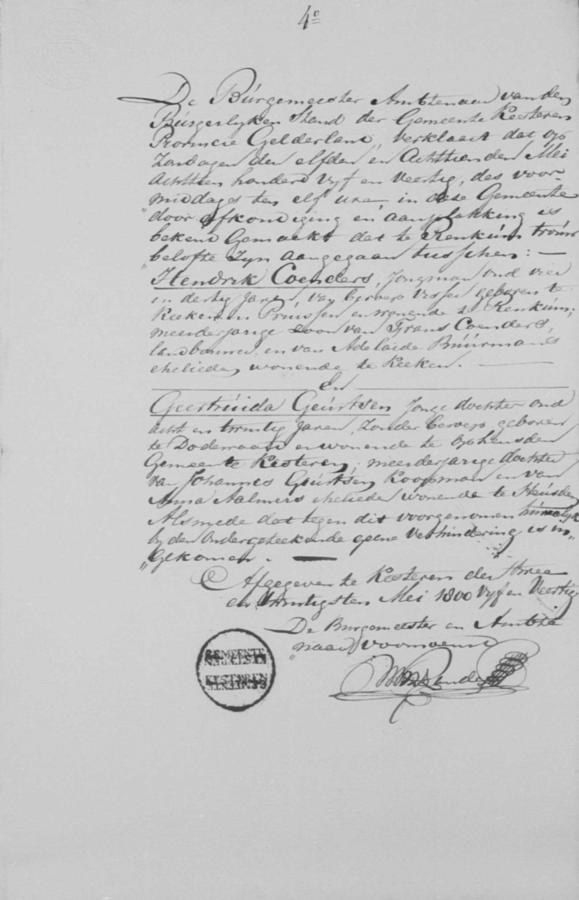 4º
De Bŭrgemeester Ambtenaar van den
Bŭrgerlyken Stand der Gemeente Kesteren
Provincie Gelderland, verklaart dat op
Zondagen den elfden en Achttienden Mei
Achttien honderd vyf en Veertig, des voor-
middags ten elf ure, in deze Gemeente
door afkondiging en aanplakking is
bekend Gemaakt dat te Renkŭm troŭw
belofte Zyn aangegaan tusschen: —
Hendrik Coenders, Jongman oud vier
en dertig Jaren, van beroep Visser geboren te
Keeken in Pruissen en wonende te Renkŭm,
meerderjarige Zoon van Frans Coenders,
landbouwer en van Adelaide Bŭŭrmans
ehelieden wonende te Keeken. —
En
Geertrŭida Geŭrtsen Jonge dochter oud
acht en twintig Jaren, Zonder beroep geboren
te Dodewaard en wonende te Opheusden
Gemeente Kesteren, meerderjarige dochter
van Johannes Geŭrtsen Koopman en van
Anna Aalmers ehelieden wonende te Heŭsden
Alsmede dat tegen dit voorgenomen hŭwelyk
by den Ondergeteekende geene Verhindering is in-
"gekomen. —
Afgegeven te Kesteren den twee
en twintigsten Mei 1800 Vyf en Veertig
De Burgemeester en Ambte
"naar voornoemd
GEMEENTE
KESTEREN